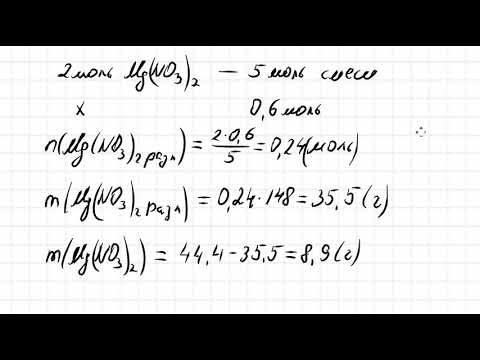 2 моль Mg(NO₃)₂ — 5 моль смеси
x 0,6 моль
n(Mg(NO₃)₂ разл) = 2·0,6/5 = 0,24(моль)
m(Mg(NO₃)₂ разл) = 0,24·148 = 35,5(г)
m(Mg(NO₃)₂) = 44,4-35,5=8,9(г)